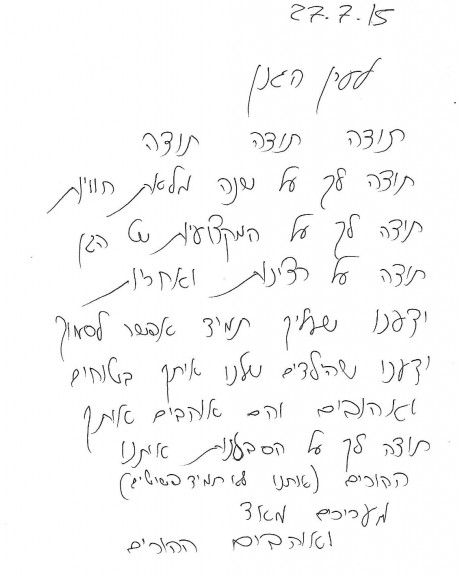 27.7.15
לעירן הגנן
תודה תודה תודה
תודה לך על שנה מלאת חוויות
תודה לך על המקצועיות של הגן
תודה על רצינות ואחריות
ידענו שעליך תמיד אפשר לסמוך
ידענו שהילדים שלנו איתך בטוחים
ואהובים והם אוהבים אותך
תודה לך על הסבלנות איתנו
ההורים (שאנו לא תמיד פשוטים)
מעריכים מאוד
ואוהבים ההורים